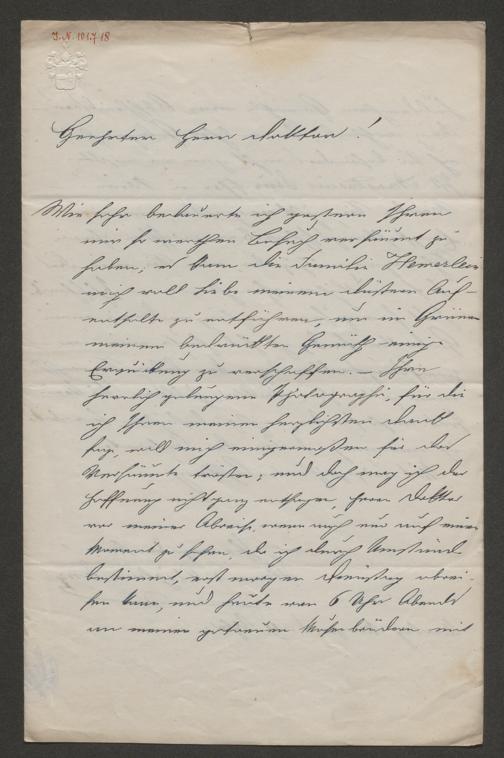 J. N. 101.718
Geehrter Herr Doktor!
Wie sehr bedauerte ich gestern Ihren
mir so werthen Besuch versäumt zu
haben; es kam die Familie Hemerlein
mich voll Liebe meinem düstern Auf-
enthalte zu entführen, um im Grünen
meinem bedrückten Gemüth einige
Erquickung zu verschaffen. – Ihre
herrlich gelungene Photographie, für die
ich Ihnen meinen herzlichsten Dank
sage, will mich einigermaßen für das
Versäumte trösten; und doch mag ich der
Hoffnung nicht ganz entsagen, Herrn Doktor
vor meiner Abreise, wenn auch nur auf einen
Moment zu sehen, da ich durch Umstände
bestimmt, erst morgen Dienstag abrei-
sen kann, und heute von 6 Uhr Abends
an meinen getreuen mit